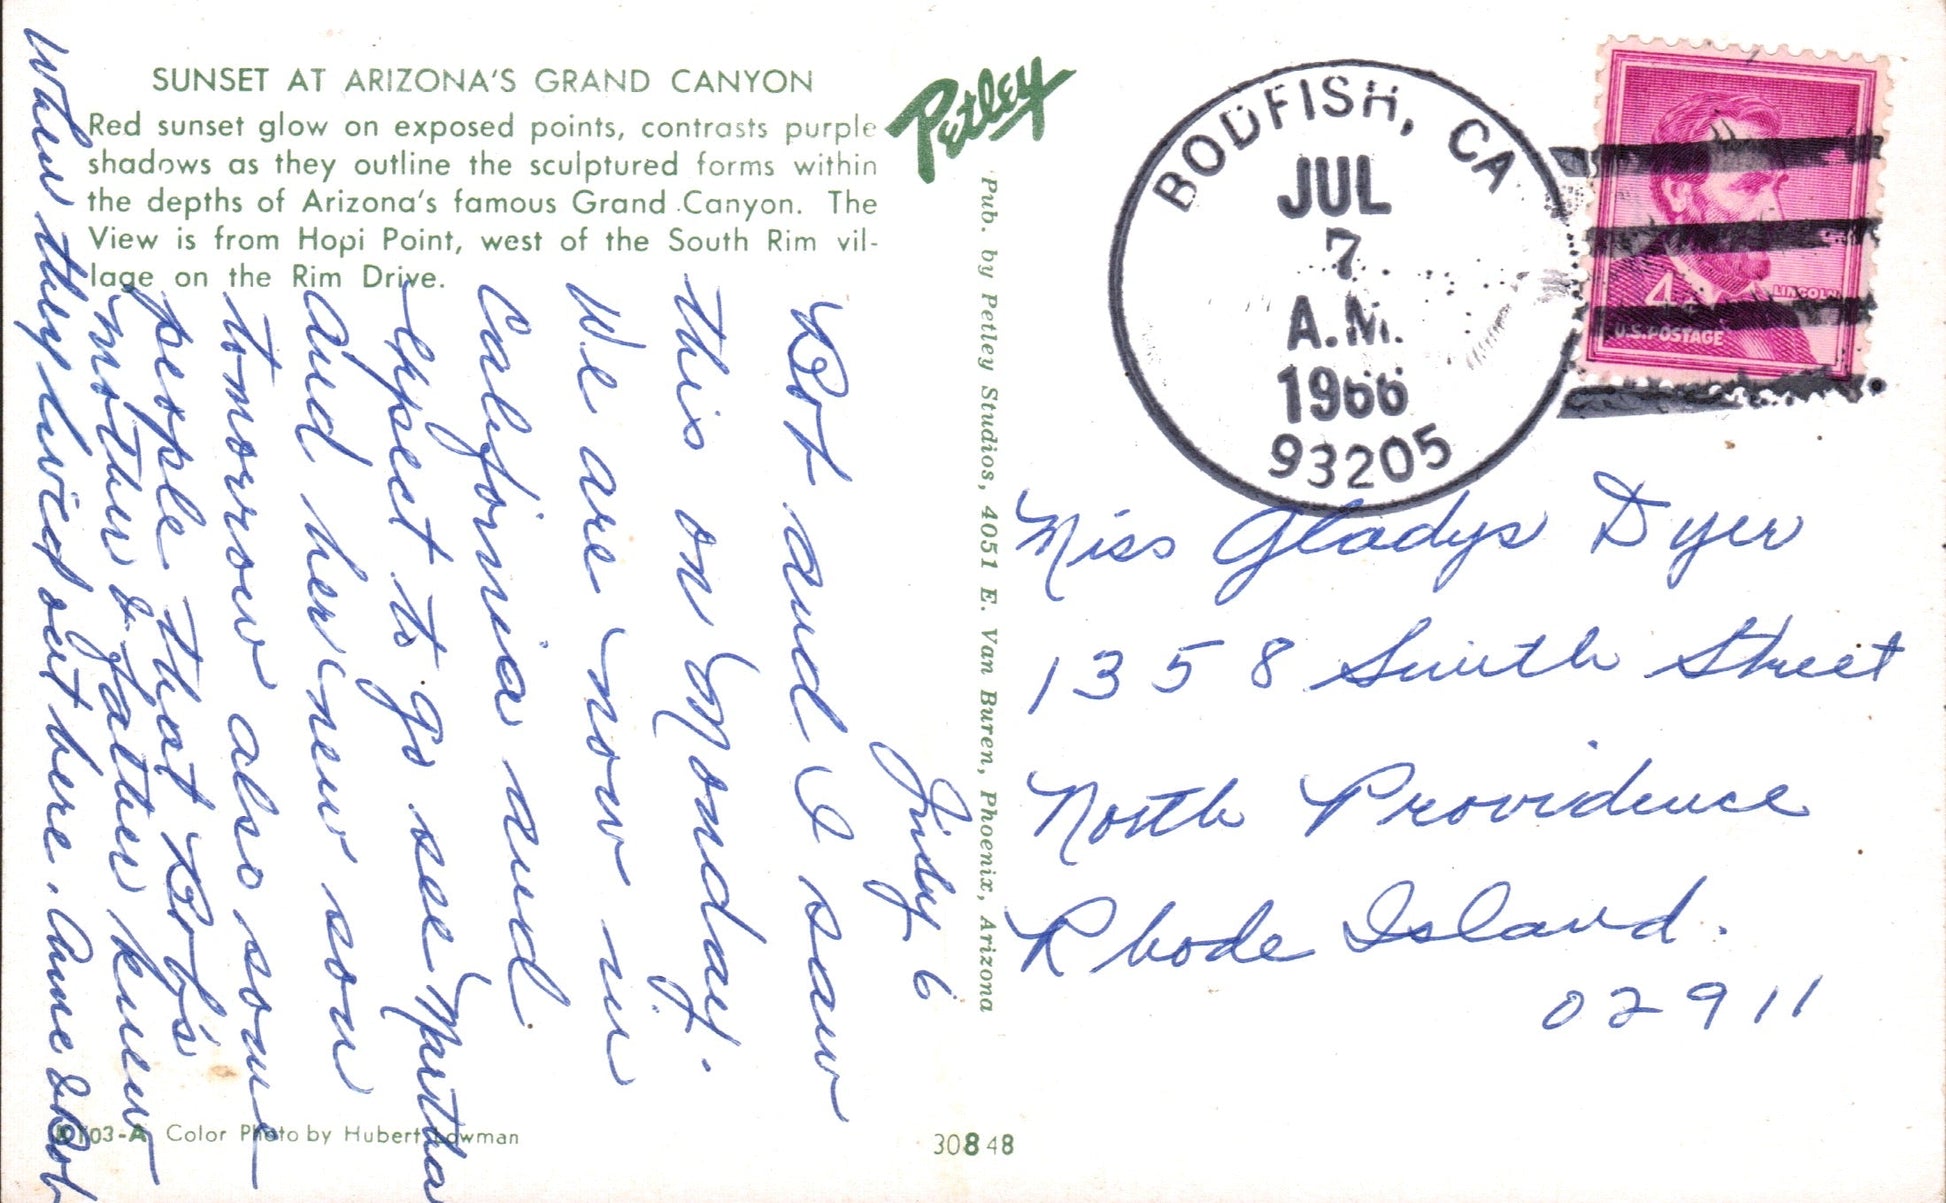 SUNSET AT ARIZONA'S GRAND CANYON
Red sunset glow on exposed points, contrasts purple
shadows as they outline the sculptured forms within
the depths of Arizona's famous Grand Canyon. The
View is from Hopi Point, west of the South Rim vil-
lage on the Rim Drive.
Petley
Pub. by Petley Studios, 4051 E. Van Buren, Phoenix, Arizona
BODFISH, CA
JUL
7
A.M.
1966
93205
4¢
LINCOLN
U.S.POSTAGE
July 6
Bob and I saw
this on Monday.
We are now in
California and
expect to go see Martha
and her new son
tomorrow also some
people that Bob's
mother & father knew
when they lived out here. Anne & Bob
Miss Gladys Dyer
1358 Smith Street
North Providence
Rhode Island.
02911
K103-A Color Photo by Hubert Lowman
30848